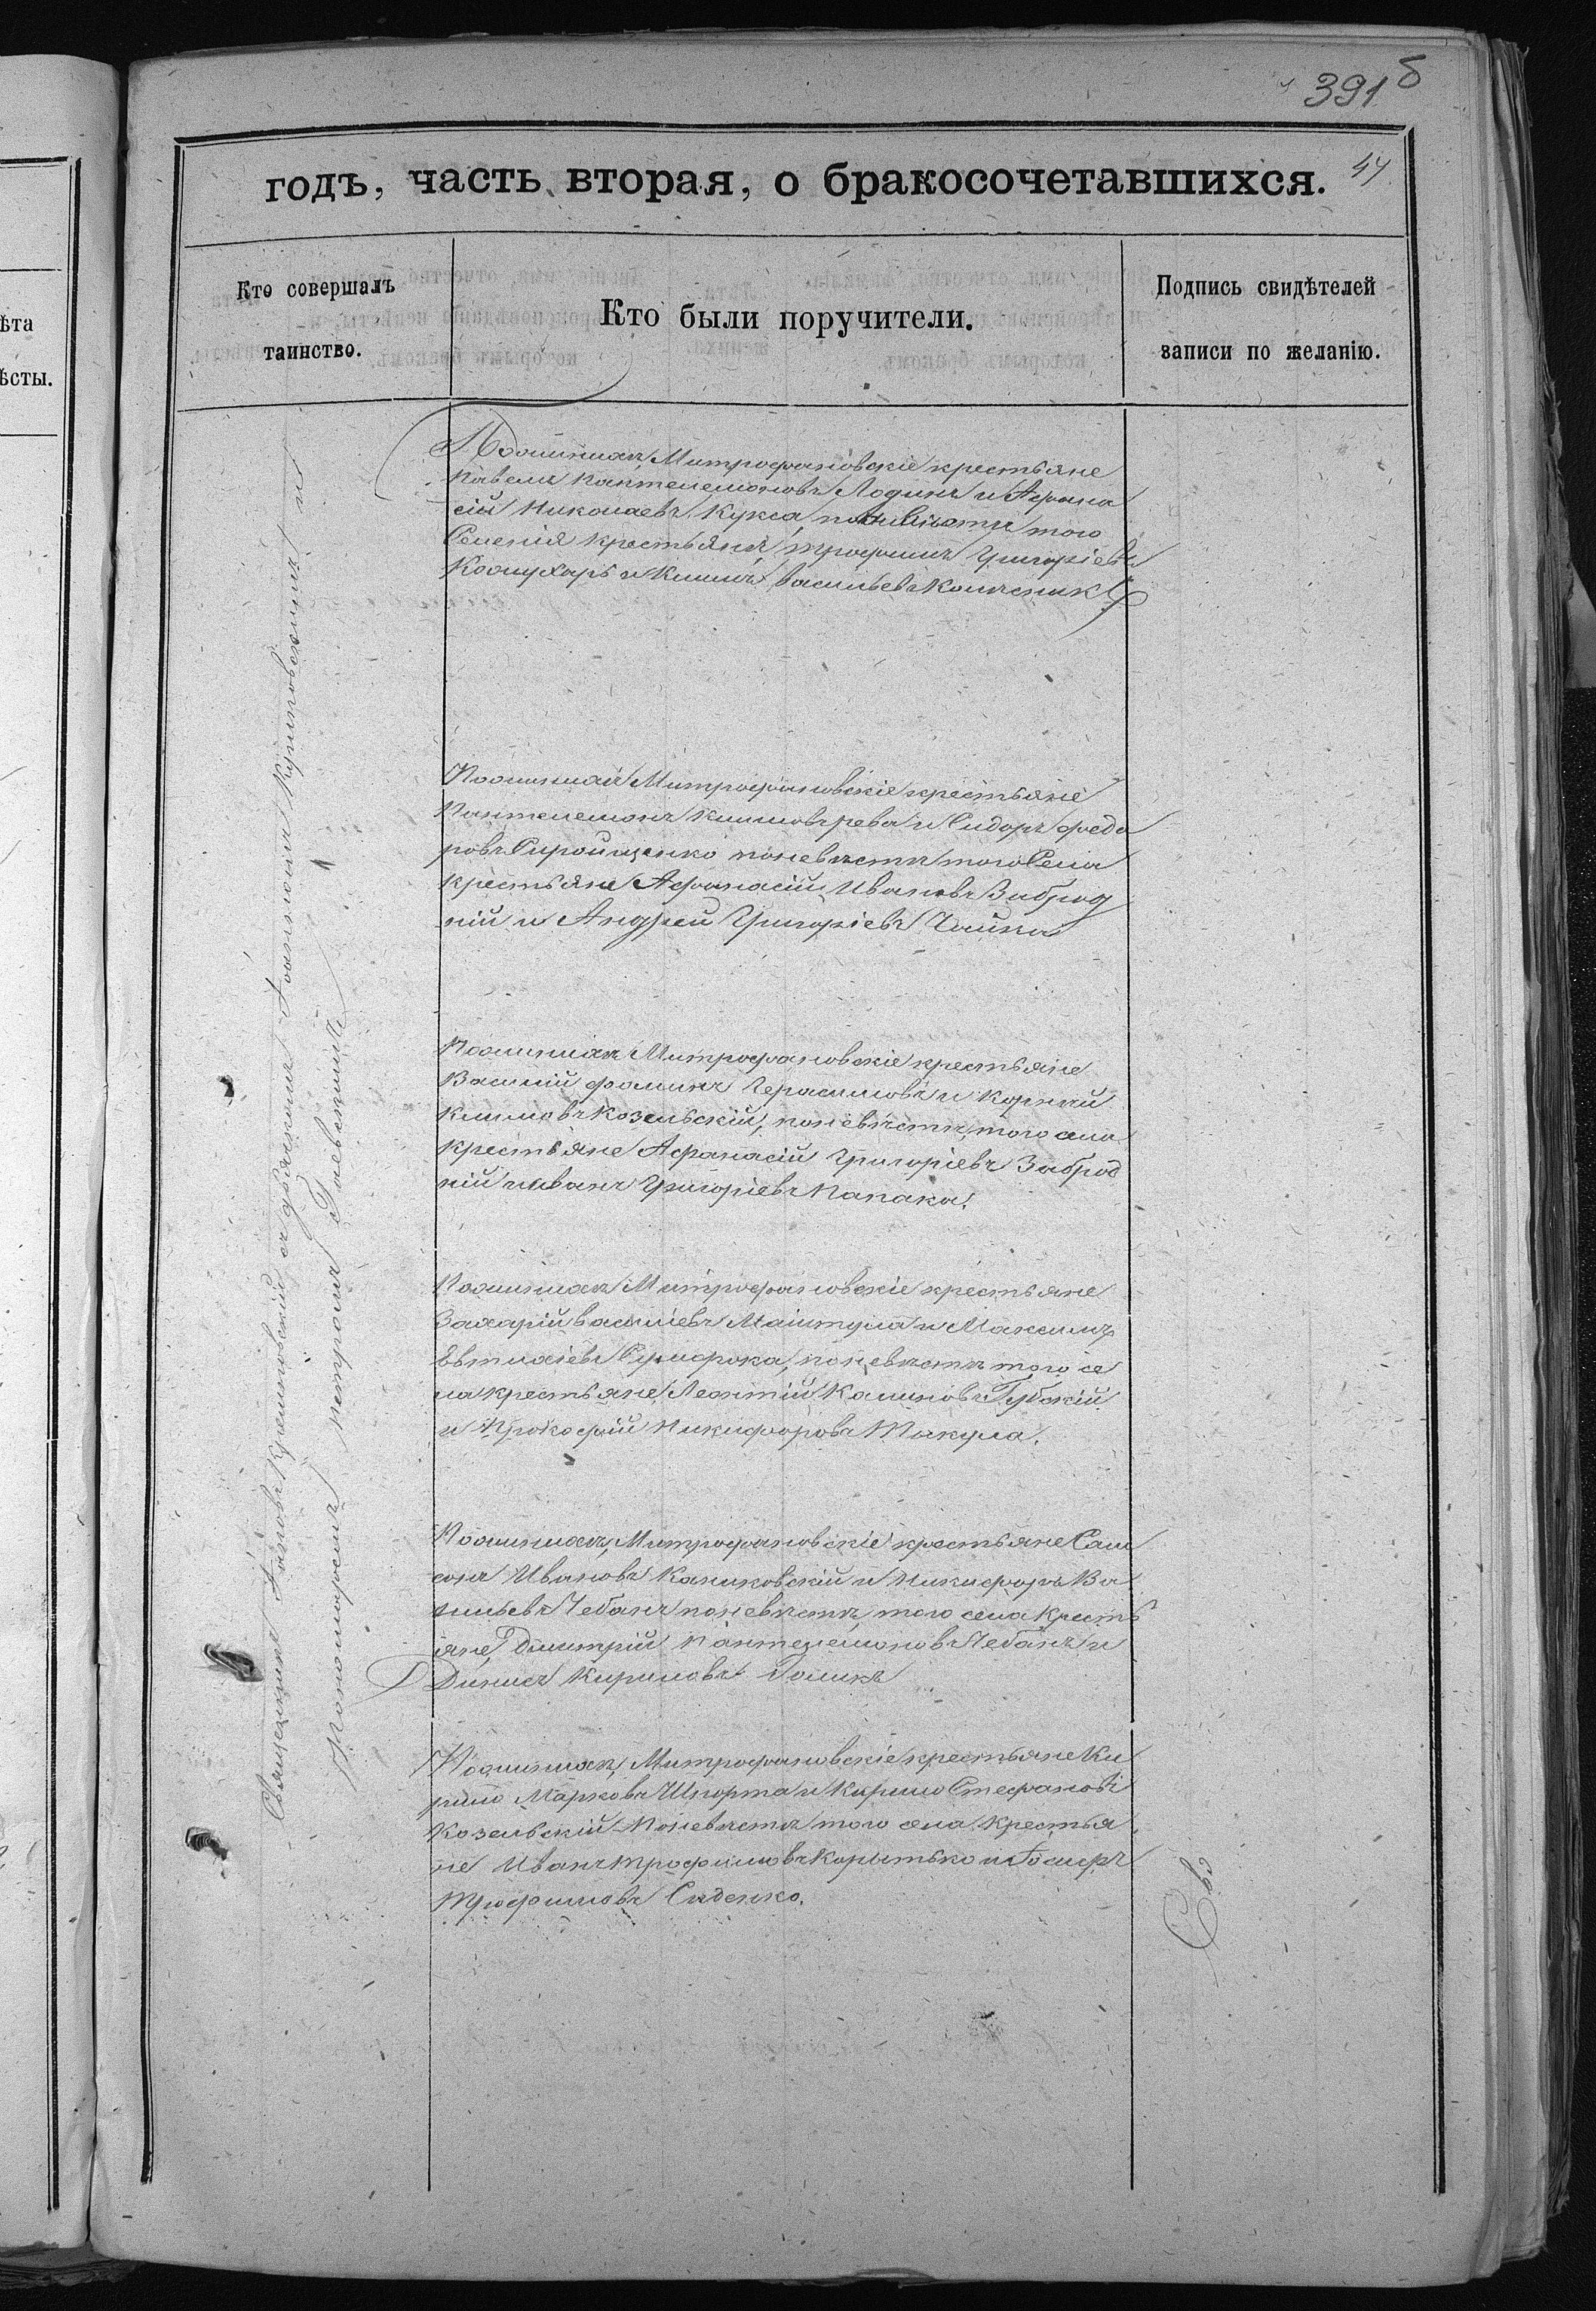 391 б
44
годъ, часть вторая, о бракосочетавшихся.
Кто совершалъ
таинство.
Кто были поручители.
Подпись свидѣтелей
записи по желанію.
ѣта
ѣсты.
Священникъ Іоаннъ Кремповскій съ діакономъ Іоанномъ Куликовскимъ и
Пономаремъ Петромъ Раевскимъ
Поженихѣ Митрофановскіе крестьяне
Павелъ Пантелемоновъ Лодинъ и Афана
сій Николаевъ Кукса, по невѣстѣ того
Селенія крестьяне, Трофимъ Григоріевъ
Кожухарь и Климъ Васильевъ
Поженихѣ Митрофановскіе крестьяне
Пантелемонъ Климовъ рева и Сидоръ Федо
ровъ Сиройщенко поневѣстѣ того Села
крестьяне Афанасій Ивановъ Заброд
ній и Андрей Григоріевъ Чайка
Поженихѣ Митрофановскіе крестьяне
Василій Фоминъ Герасимовъ и Корній
Климовъ Козельскій, поневѣстѣ, того села
крестьяне Афанасій Григоріевъ Заброд
ній и Иванъ Григоріевъ Папака.
Поженихѣ Митрофановскіе крестьяне
Захарій Василіевъ Маштула и Максимъ
Евтихіевъ поневѣстѣ того се
ла крестьяне, Леонтій Калиновъ Губскій
и Прокофій Никифоровъ Макула.
Поженихѣ, Митрофановскіе крестьяне Сам
сонъ Ивановъ Калиновскій и Никифоръ Ва
сильевъ Чебанъ поневѣстѣ, того села Кресть
яне, Дмитрій Пантелемоновъ Чебанъ и
Динисъ Кириловъ Голикъ
Поженихѣ, Митрофановскіе крестьяне Ки
рило Марковъ Шпорта и Кирило Стефановъ
Козельскій Поневѣстѣ того села Крестья
не Иванъ Трофимовъ Корытько и Іосифъ
Трофимовъ Сиденко.
Свя